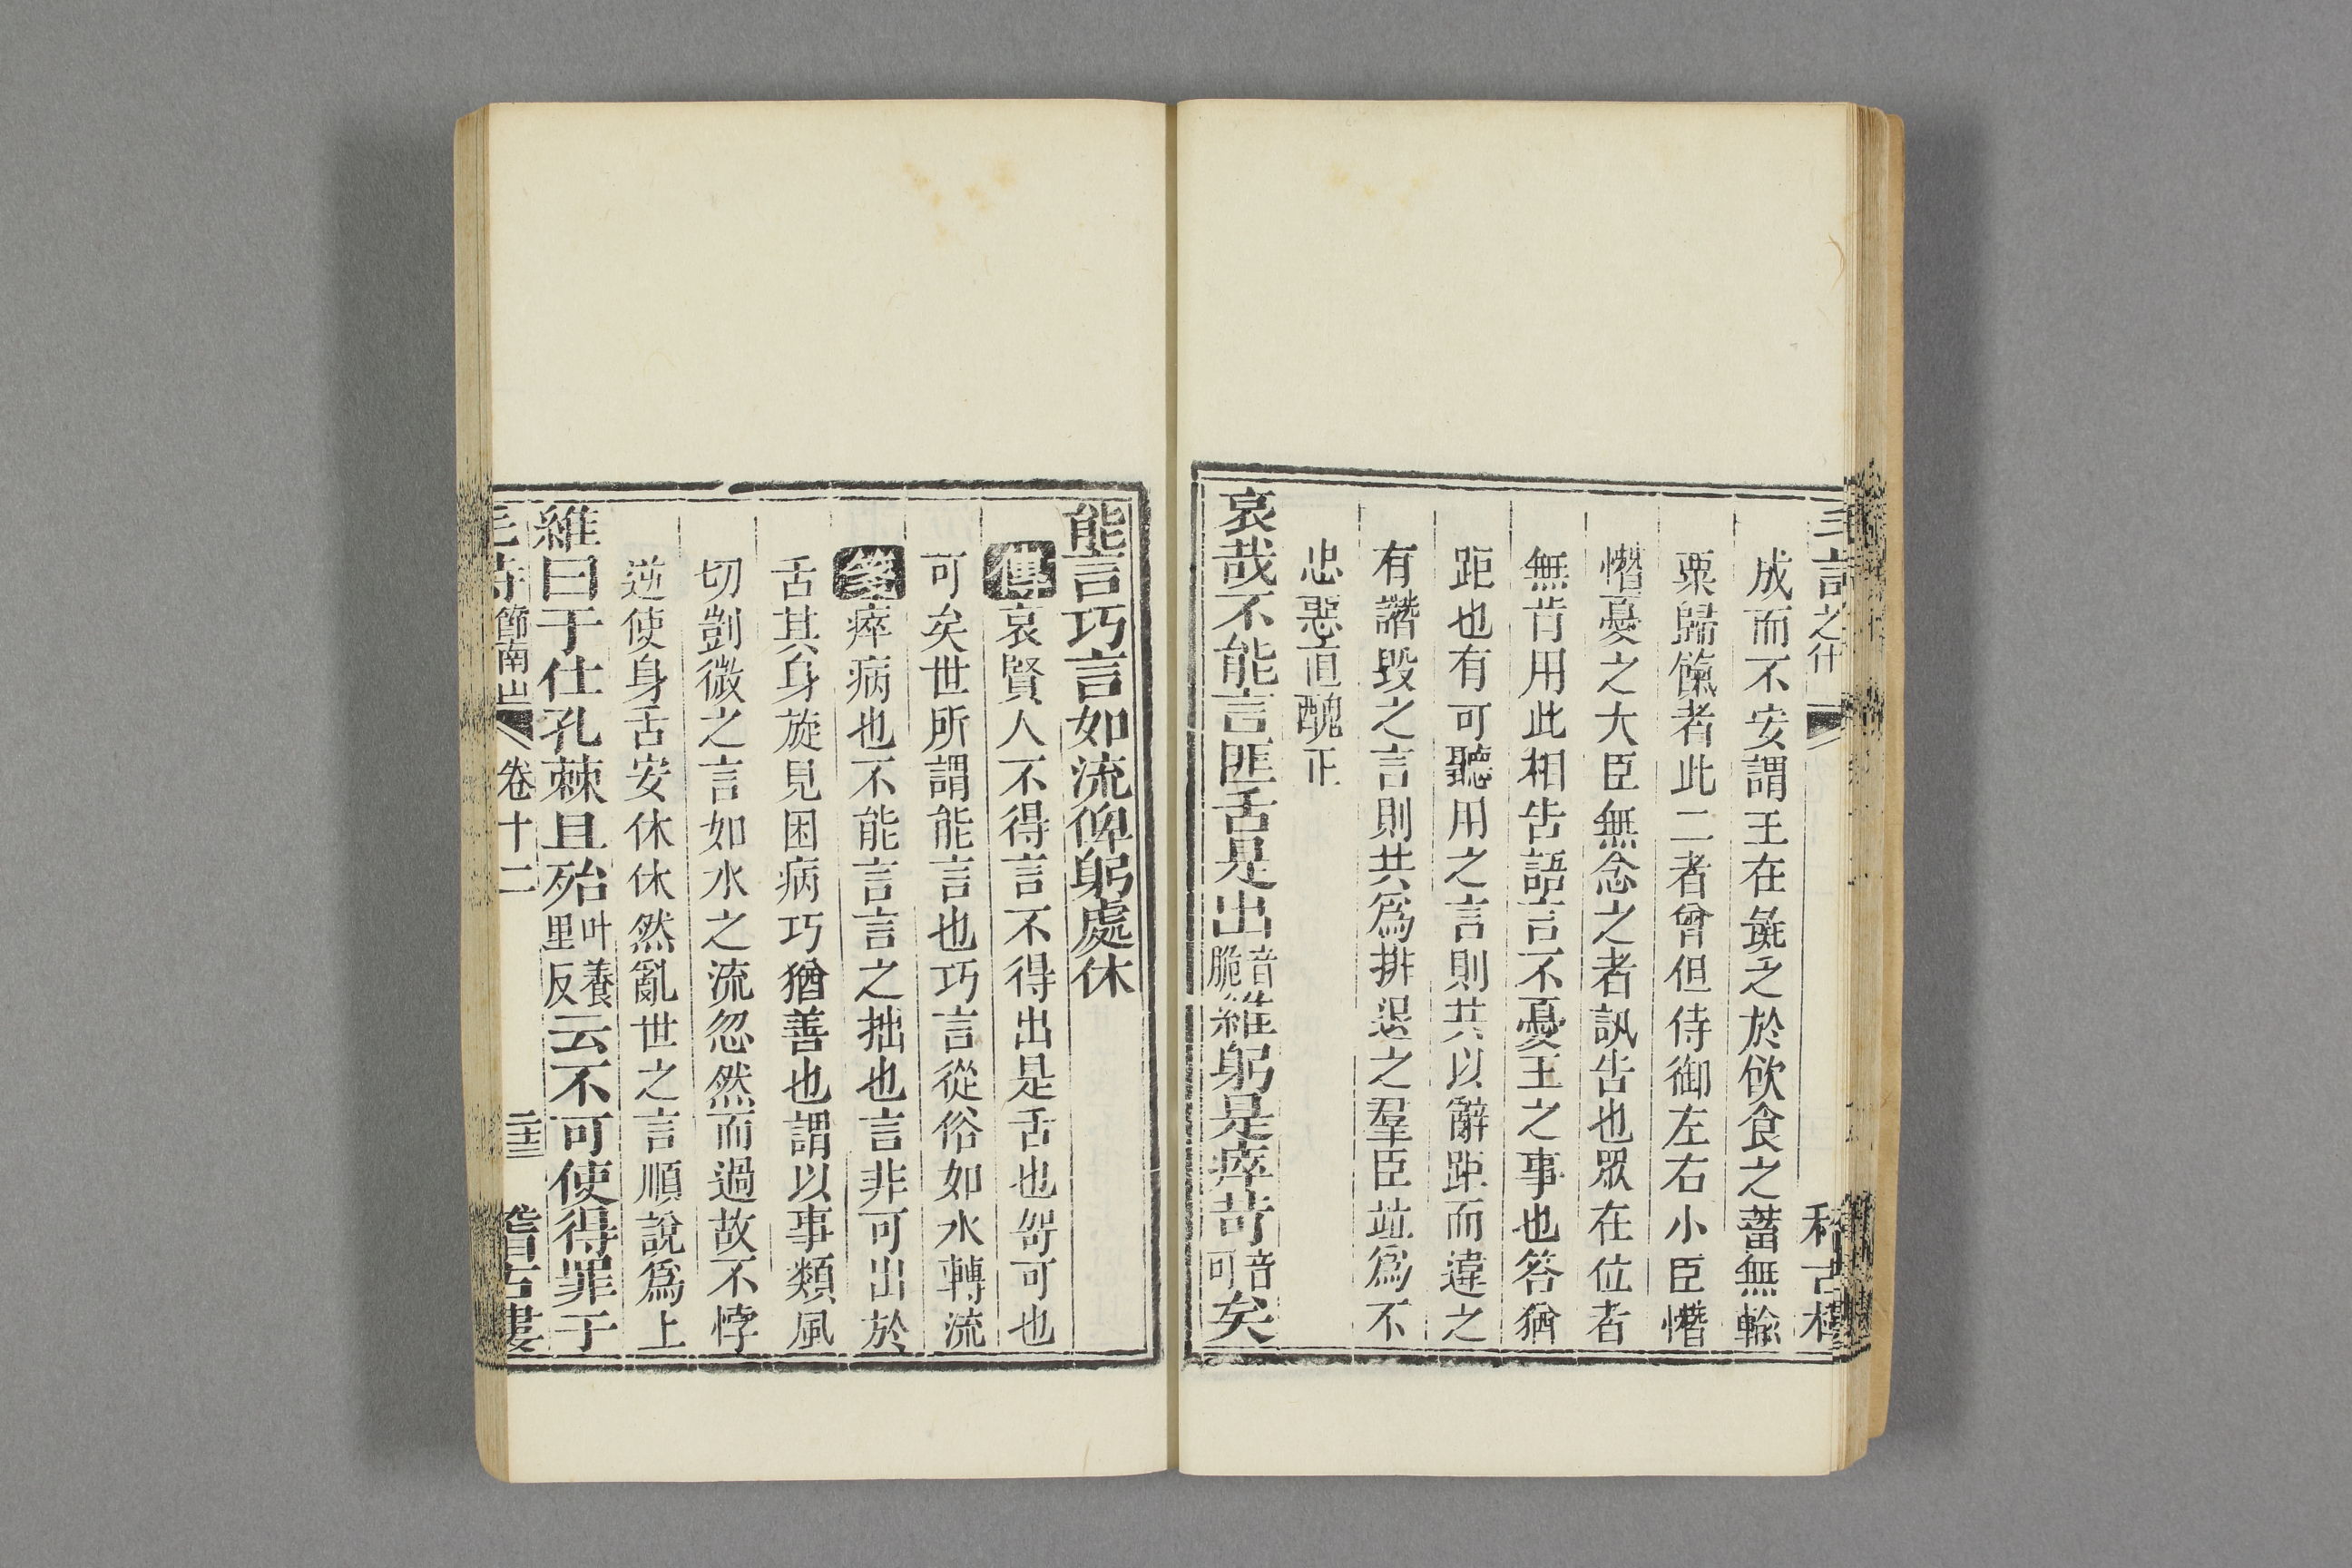 成而不安謂王在彘乏於飲食之蓄無輸
粟歸餼者此二者曾但侍御左右小臣憯
憯憂之大臣無念之者訊告也眾在位者
無肯用此相告語言不憂王之事也答猶
距也有可聽用之言則共以辭距而違之
有譖毀之言則共為排退之羣臣竝為不
忠惡直醜正
哀哉不能言匪舌是出音脆維躬是瘁哿音可矣
能言巧言如流俾躬處休
傳哀賢人不得言不得出是舌也哿可也
可矣世所謂能言也巧言從俗如水轉流
箋瘁病也不能言言之拙也言非可出於
舌其身旋見困病巧猶善也謂以事類風
切剴微之言如水之流忽然而過故不悖
逆使身舌安休休然亂世之言順說為上
維曰于仕孔棘且殆叶養里反云不可使得罪于
節南山 卷十二 二十三